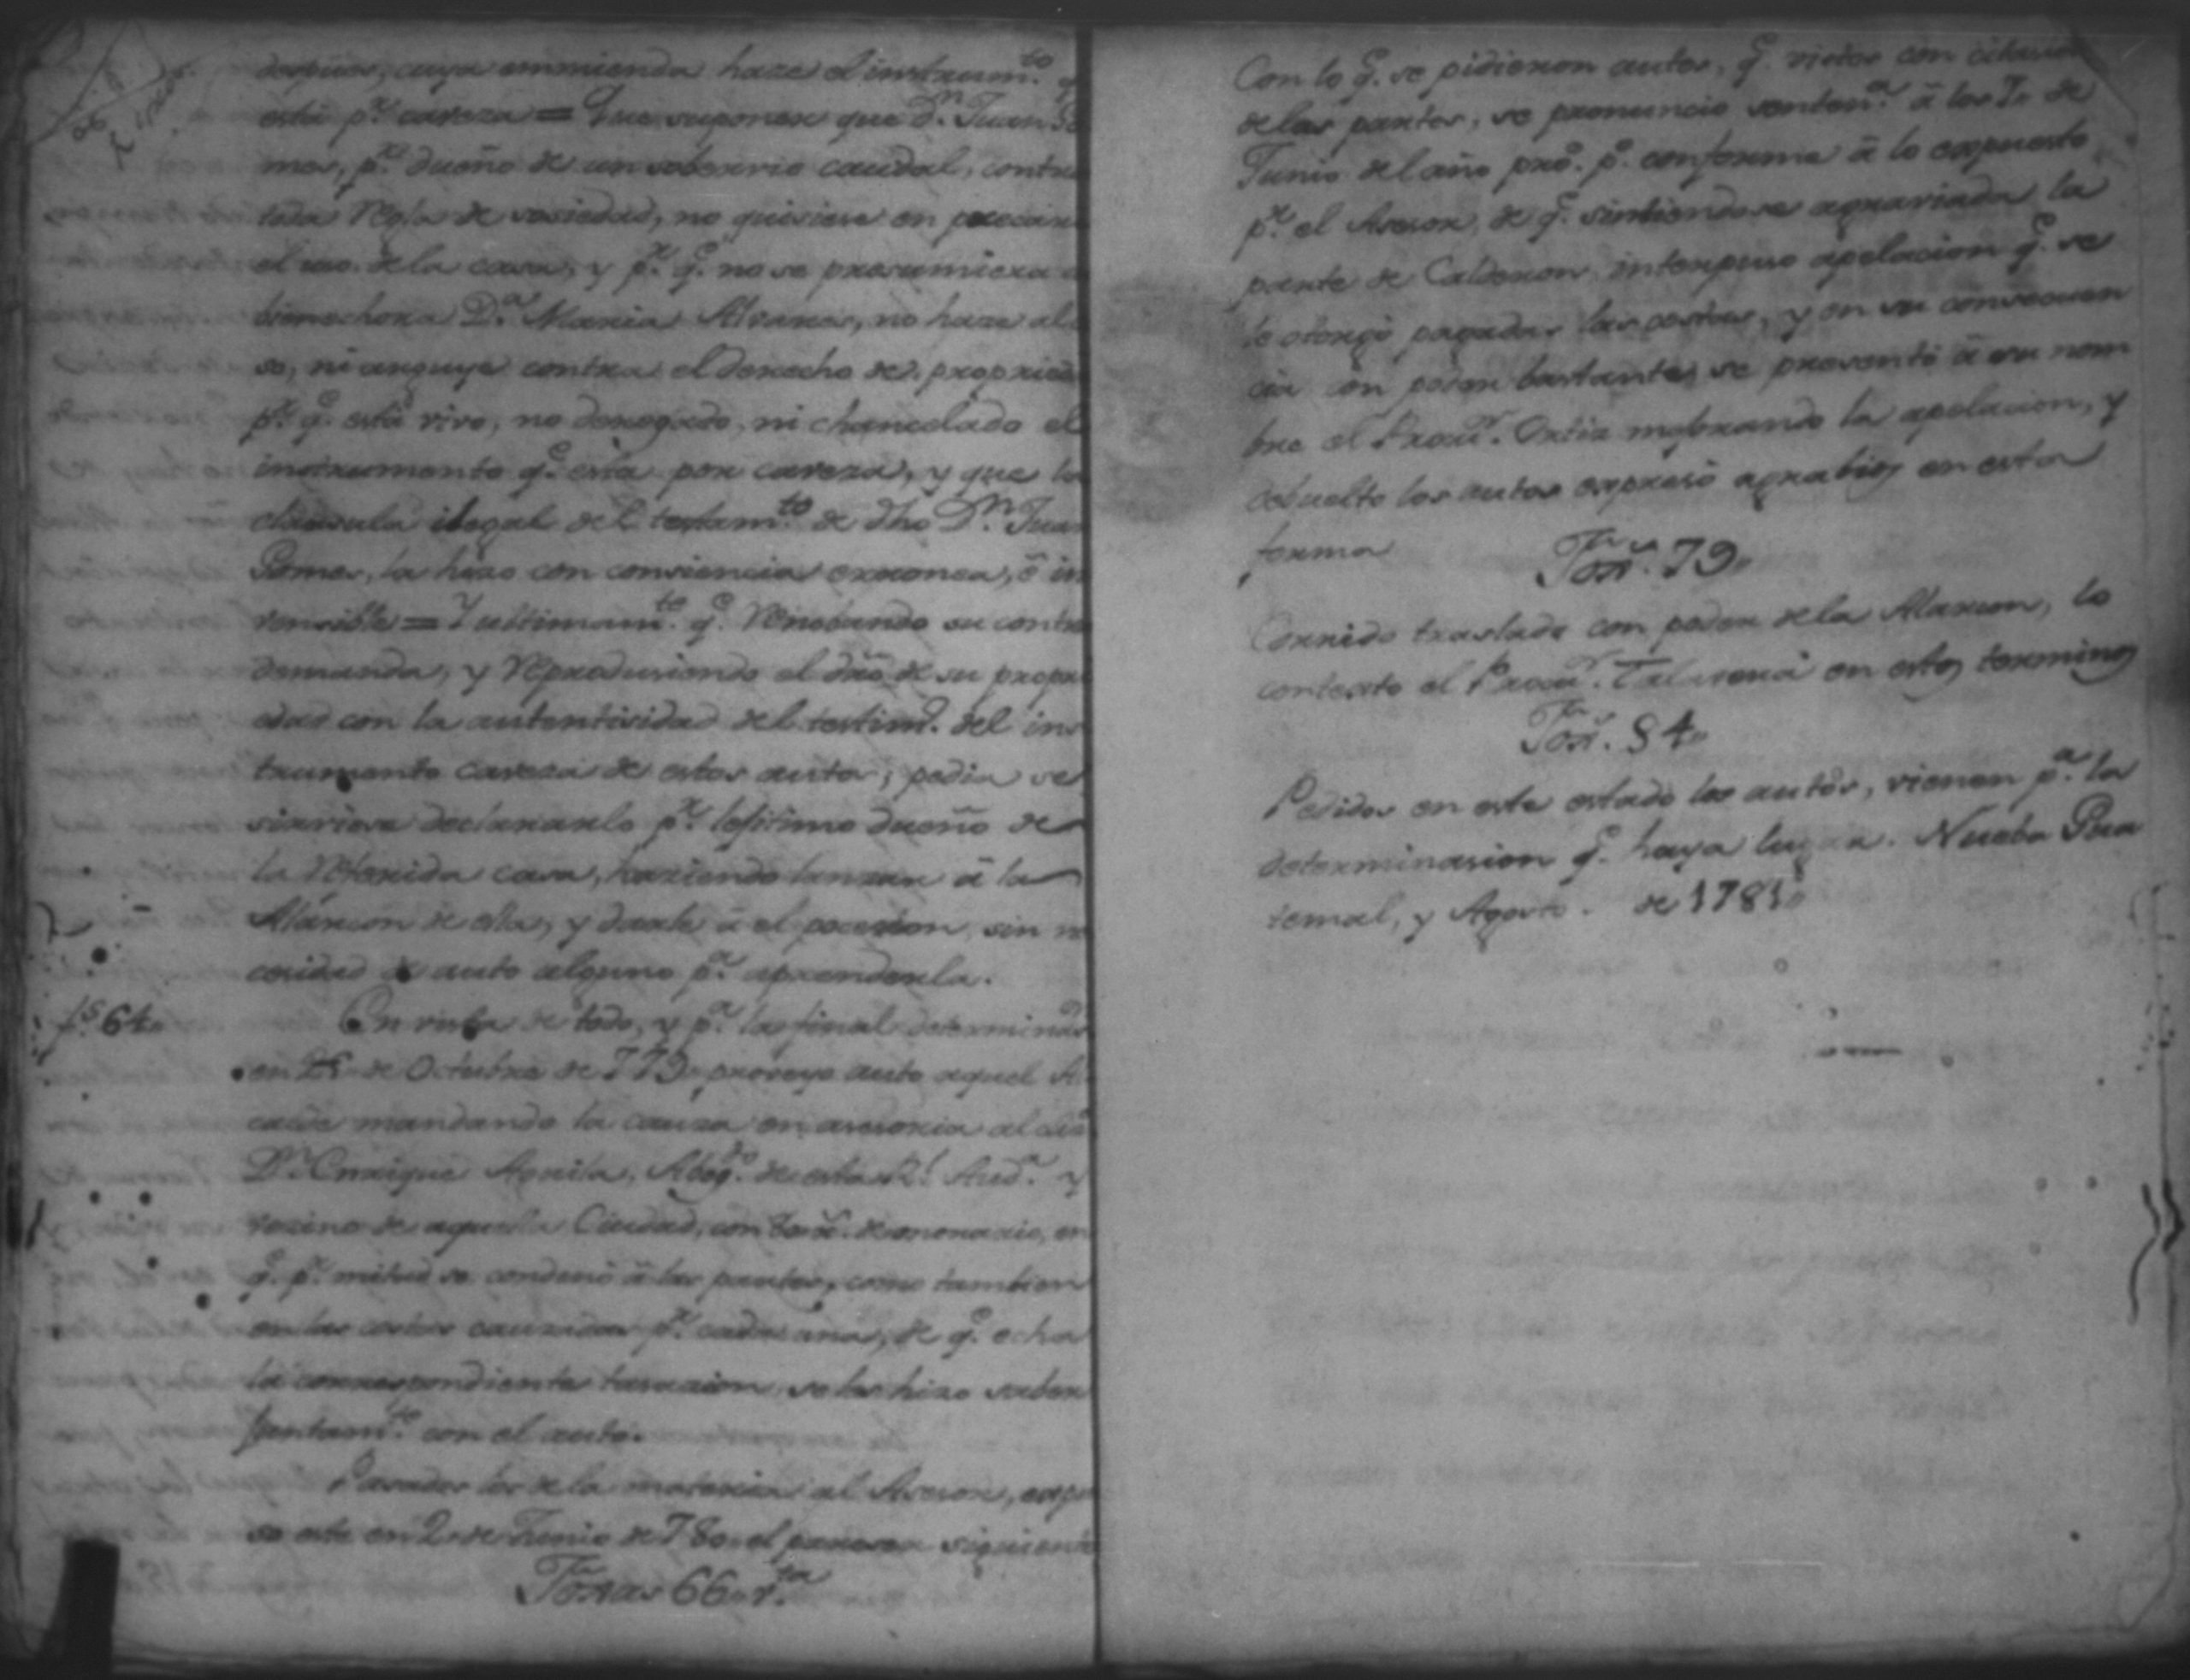 despues, cuya enmienda haze el instrum.to q
está p.r caveza = Que suponer que D.n Juan Go
mes, p.r dueño de un sobervio caudal, contra
toda regla de sosiedad, no quisiese en
el uso de la casa, y p.r q.e no se presumiera
bienechora D.a Maria Alvares, no haze al
so, ni arguye contra el derecho de propried
p.r q.e está vivo, no derogado, ni chancelado el
instrumento q.e está por caveza, y que la
clausula ilegal del testam.to de dho D.n Juan
Gomes, la hizo con consiencia erronea, ô in
vensible = Y ultimam.te q.e renobando su contra
demanda, y reprodusiendo el dro de su propri
edad con la autentisidad del testim.o del ins
trumento caveza de estos autos, pedia se
sirviese declararlo p.r lexitimo dueño de
la referida casa, haziendo lanzar â la
Alarcon de ella, y darle â el posesion, sin ne
cesidad de auto alguno p.a aprenderla.
f.s 64.
En vista de todo, y p.a la final determinas
en de Octubre de 779. proveyo auto aquel Al
calde mandando la causa en asesoria al
D.n Enrique Aguila, Abog.do de esta R.l Aud.a y
vezino de aquella Ciudad, con de onorario, en
q.e p.r mitad se condenó â las partes, como tambien
en las costas causadas p.r cada una, de q.e echa
la correspondiente tasacion, se les hizo saber
juntam.te con el auto.
Pasados los de la materia al Asesor, expu
so este en 2. de Junio de 780. el pareser siguiente
Foxas 66. v.ta
Con lo q.e se pidieron autos, q.e vistos con citasion
de las partes, se pronuncio senten.a â los 7. de
Junio del año pro. p.o conforme â lo expuesto
p.r el Asesor, de q.e sintiendose agraviada la
parte de Calderon interpuso apelacion q.e se
le otorgó pagadas las costas, y en su consecuen
cia con poder bastante, se presentó â su nom
bre el Procu.r Ortiz mejorando la apelacion, y
debuelto los autos expresó agrabios en esta
forma
Fox.s 79.
Corrido traslado con poder de la Alarcon, lo
contexto el Procu.r Talavera en estos terminos
Fox.s 84.
Pedidos en este estado los autos, vienen p.a la
determinasion q.e haya lugar. Nueba Gua
temal, y Agosto. de 1781.